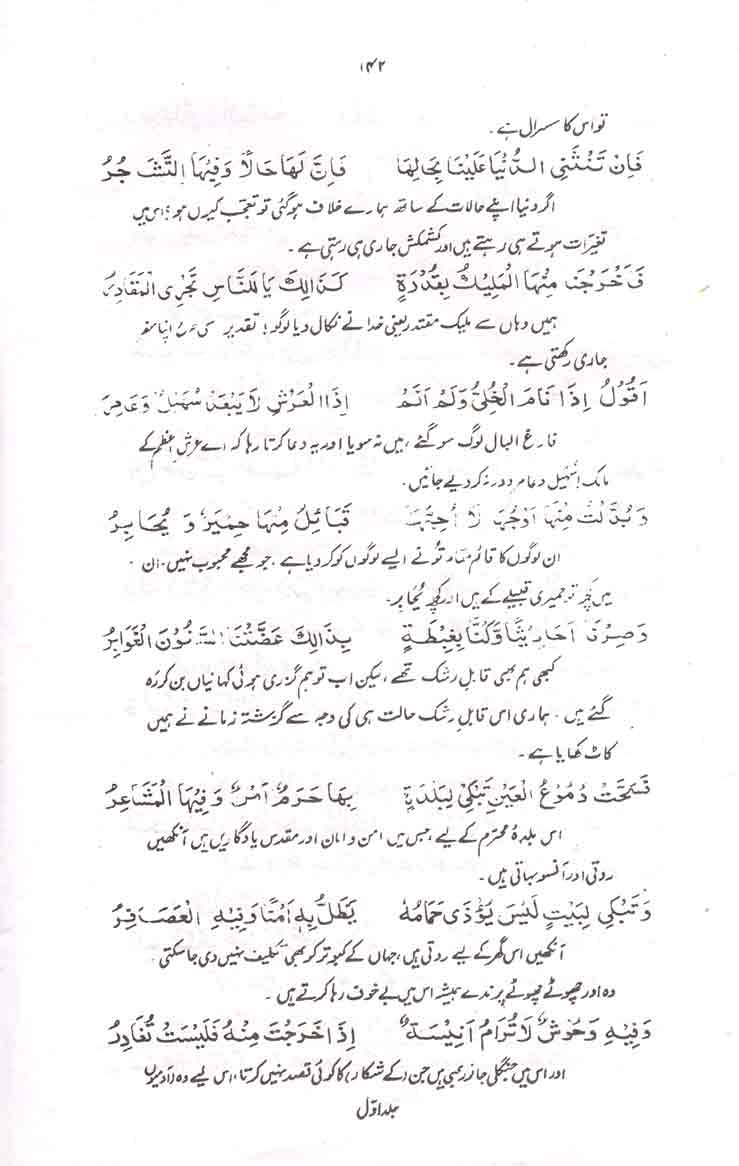 ۱۴۲
تو اس کا سسرال ہے۔
فَاِنْ تَنْثَنِي الدُّنْيَا عَلَيْنَا بِحَالِهَا فَاِنَّ لَهَا حَالًا وَفِيْهَا التَّشَاجُرُ
اگر دنیا اپنے حالات کے ساتھ ہمارے خلاف ہوگئی تو تعجب کیوں ہو؛ اس میں
تغیرات ہوتے ہی رہتے ہیں اور کشمکش جاری ہی رہتی ہے۔
فَاَخْرَجَنَا مِنْهَا الْمَلِيْكُ بِقُدْرَةٍ كَذَالِكَ يَا لَلنَّاسِ تَجْرِي الْمَقَادِرُ
ہمیں وہاں سے ملیک مقتدر یعنی خدا نے نکال دیا لوگو! تقدیر اپنا سفر
جاری رکھتی ہے۔
اَقُوْلُ اِذَا نَامَ الْخَلِيُّ وَلَمْ اَنَمْ اِذَا الْعَرْشِ لَا يَبْعَدْ سُهَيْلٌ وَعَامِرُ
فارغ البال لوگ سو گئے، میں نہ سویا اور یہ دعا کرتا رہا کہ اے عرش اعظم کے
مالک! سُہیل و عامر دور نہ کر دیے جائیں۔
وَبُدِّلْتُ مِنْهَا اَوْجُهًا لَا اُحِبُّهَا قَبَائِلُ مِنْهَا حِمْيَرٌ وَيُحَابِرُ
ان لوگوں کا قائم مقام تو نے ایسے لوگوں کو کر دیا ہے، جو مجھے محبوب نہیں۔ ان
میں کچھ تو حمیری قبیلے کے ہیں اور کچھ یُحابر۔
وَصِرْنَا اَحَادِيْثًا وَّكُنَّا بِغِبْطَةٍ بِذَالِكَ عَضَّتْنَا السَّنُوْنَ الْغَوَابِرُ
کبھی ہم بھی قابل رشک تھے، لیکن اب تو ہم گزری ہوئی کہانیاں بن کر رہ
گئے ہیں۔ ہماری اس قابلِ رشک حالت ہی کی وجہ سے گزشتہ زمانے نے ہمیں
کاٹ کھایا ہے۔
فَسَحَّتْ دُمُوْعُ الْعَيْنِ تَبْكِيْ لِبَلْدَةٍ بِهَا حَرَمٌ اَمْنٌ وَفِيْهَا الْمَشَاعِرُ
اس بلدۂ محترم کے لیے، جس میں امن و امان اور مقدس یادگاریں ہیں آنکھیں
روتی اور آنسو بہاتی ہیں۔
وَتَبْكِيْ لِبَيْتٍ لَيْسَ يُؤْذٰى حَمَامُهٗ يَظَلُّ بِهٖ اَمْنًا وَفِيْهِ الْعَصَافِرُ
آنکھیں اس گھر کے لیے روتی ہیں، جہاں کے کبوتر کو بھی تکلیف نہیں دی جا سکتی۔
وہ اور چھوٹے چھوٹے پرندے ہمیشہ اس میں بے خوف رہا کرتے ہیں۔
وَفِيْهِ وُحُوْشٌ لَا تُرَامُ اَنِيْسَةٌ اِذَا خَرَجَتْ مِنْهُ فَلَيْسَتْ تُغَادِرُ
اور اس میں جنگلی جانور بھی ہیں جن (کے شکار) کا کوئی قصد نہیں کرتا، اس لیے وہ (آدمیوں
جلد اوّل